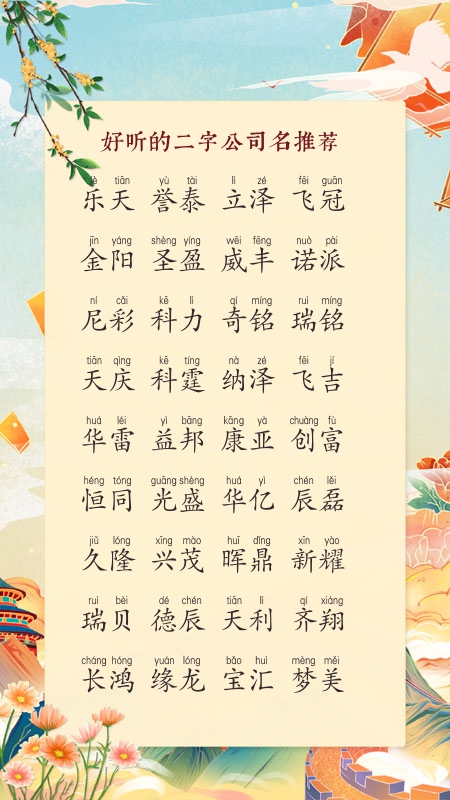 好听的二字公司名推荐
lè tiān yù tài lì zé fēi guān
乐天 誉泰 立泽 飞冠
jīn yáng shèng yíng wēi fēng nuò pài
金阳 圣盈 威丰 诺派
ní cǎi kē lì qí míng ruì míng
尼彩 科力 奇铭 瑞铭
tiān qìng kē tíng nà zé fēi jí
天庆 科霆 纳泽 飞吉
huá léi yì bāng kāng yà chuàng fù
华雷 益邦 康亚 创富
héng tóng guāng shèng huá yì chén lěi
恒同 光盛 华亿 辰磊
jiǔ lóng xīng mào huī dǐng xīn yào
久隆 兴茂 晖鼎 新耀
ruì bèi dé chén tiān lì qí xiáng
瑞贝 德辰 天利 齐翔
cháng hóng yuán lóng bǎo huì mèng měi
长鸿 缘龙 宝汇 梦美